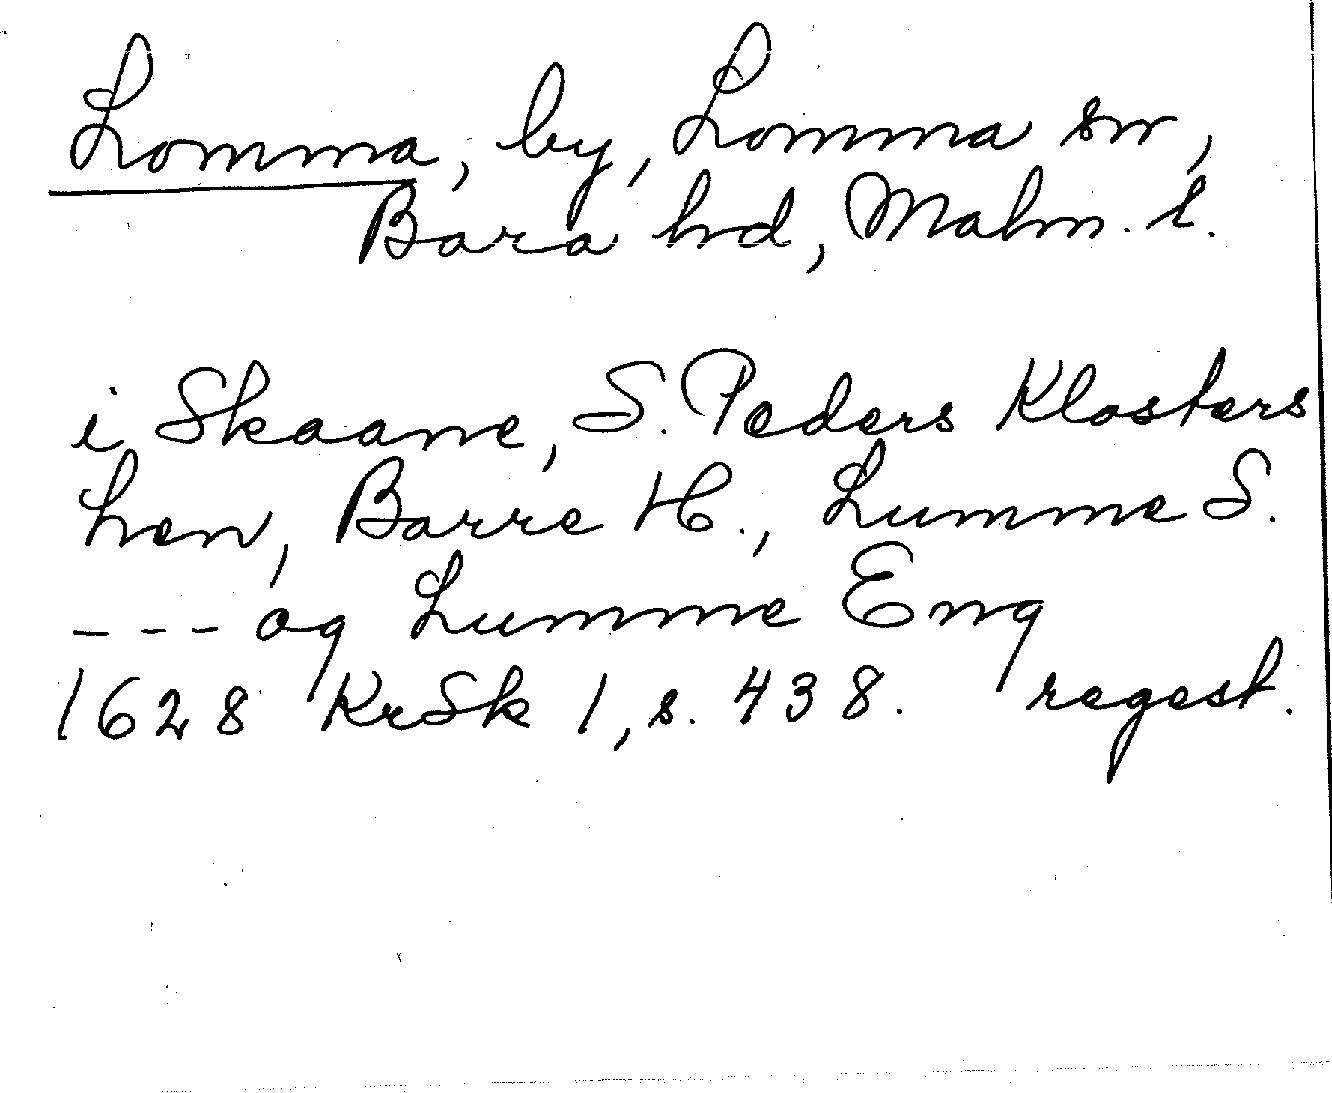 Lomma, by, Lomma sn,
Bara hd, Malm. l.
i Skaane, S. Peders Klosters
Len, Barre H., Lumme S.
--- og Lumme Eng
1628 KrSk 1, s. 438. regest.